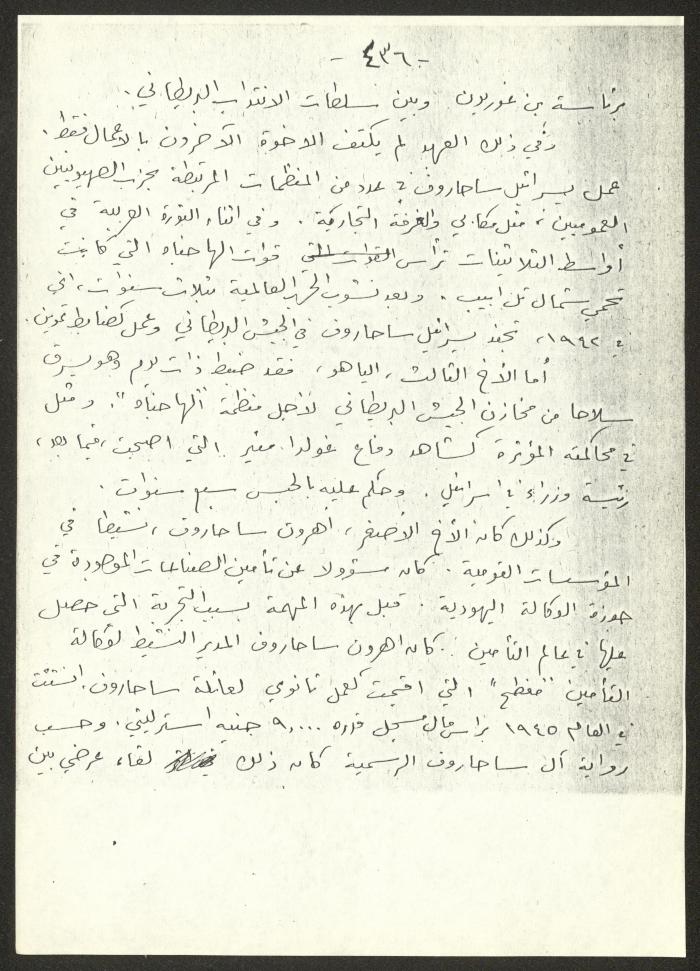 - ٤٣٦ -
برئاسة بن غوريون وبين سلطات الانتداب البريطاني.
وفي ذلك العهد لم يكتف الاخوة الآخرون بالاعمال فقط.
عمل يسرائيل ساحاروف في عدد من المنظمات المرتبطة بحزب الصهيونيين
العموميين، مثل مكابي والغرفة التجارية. وفي اثناء الثورة العربية في
أواسط الثلاثينات ترأس القوات التي قوات الهاجناه التي كانت
تحمي شمال تل ابيب. وبعد نشوب الحرب العالمية بثلاث سنوات، اي
في ١٩٤٢، تجند يسرائيل ساحاروف في الجيش البريطاني وعمل كضابط تموين.
أما الأخ الثالث، الياهو، فقد ضبط ذات يوم وهو يسرق
سلاحا من مخازن الجيش البريطاني لأجل منظمة "الهاجناه". ومثل
في محاكمته المؤثرة كشاهد دفاع غولدا مئير التي اصبحت، فيما بعد،
رئيسة وزراء في اسرائيل. وحكم عليه بالحبس سبع سنوات.
وكذلك كان الأخ الأصغر، اهرون ساحاروف، نشيطا في
المؤسسات القومية. كان مسؤولا عن تأمين الصناعات الموجودة في
حوزة الوكالة اليهودية. قبل بهذه المهمة بسبب التجربة التي حصل
عليها في عالم التأمين. كان اهرون ساحاروف المدير النشيط لوكالة
التأمين "مفطح" التي اقيمت كعمل ثانوي لعائلة ساحاروف. انشئت
في العام ١٩٤٥ برأس مال مسجل قدره ٩٠٠٠ جنيه استرليني. وحسب
رواية آل ساحاروف الرسمية كان ذلك لقاء عرضي بين